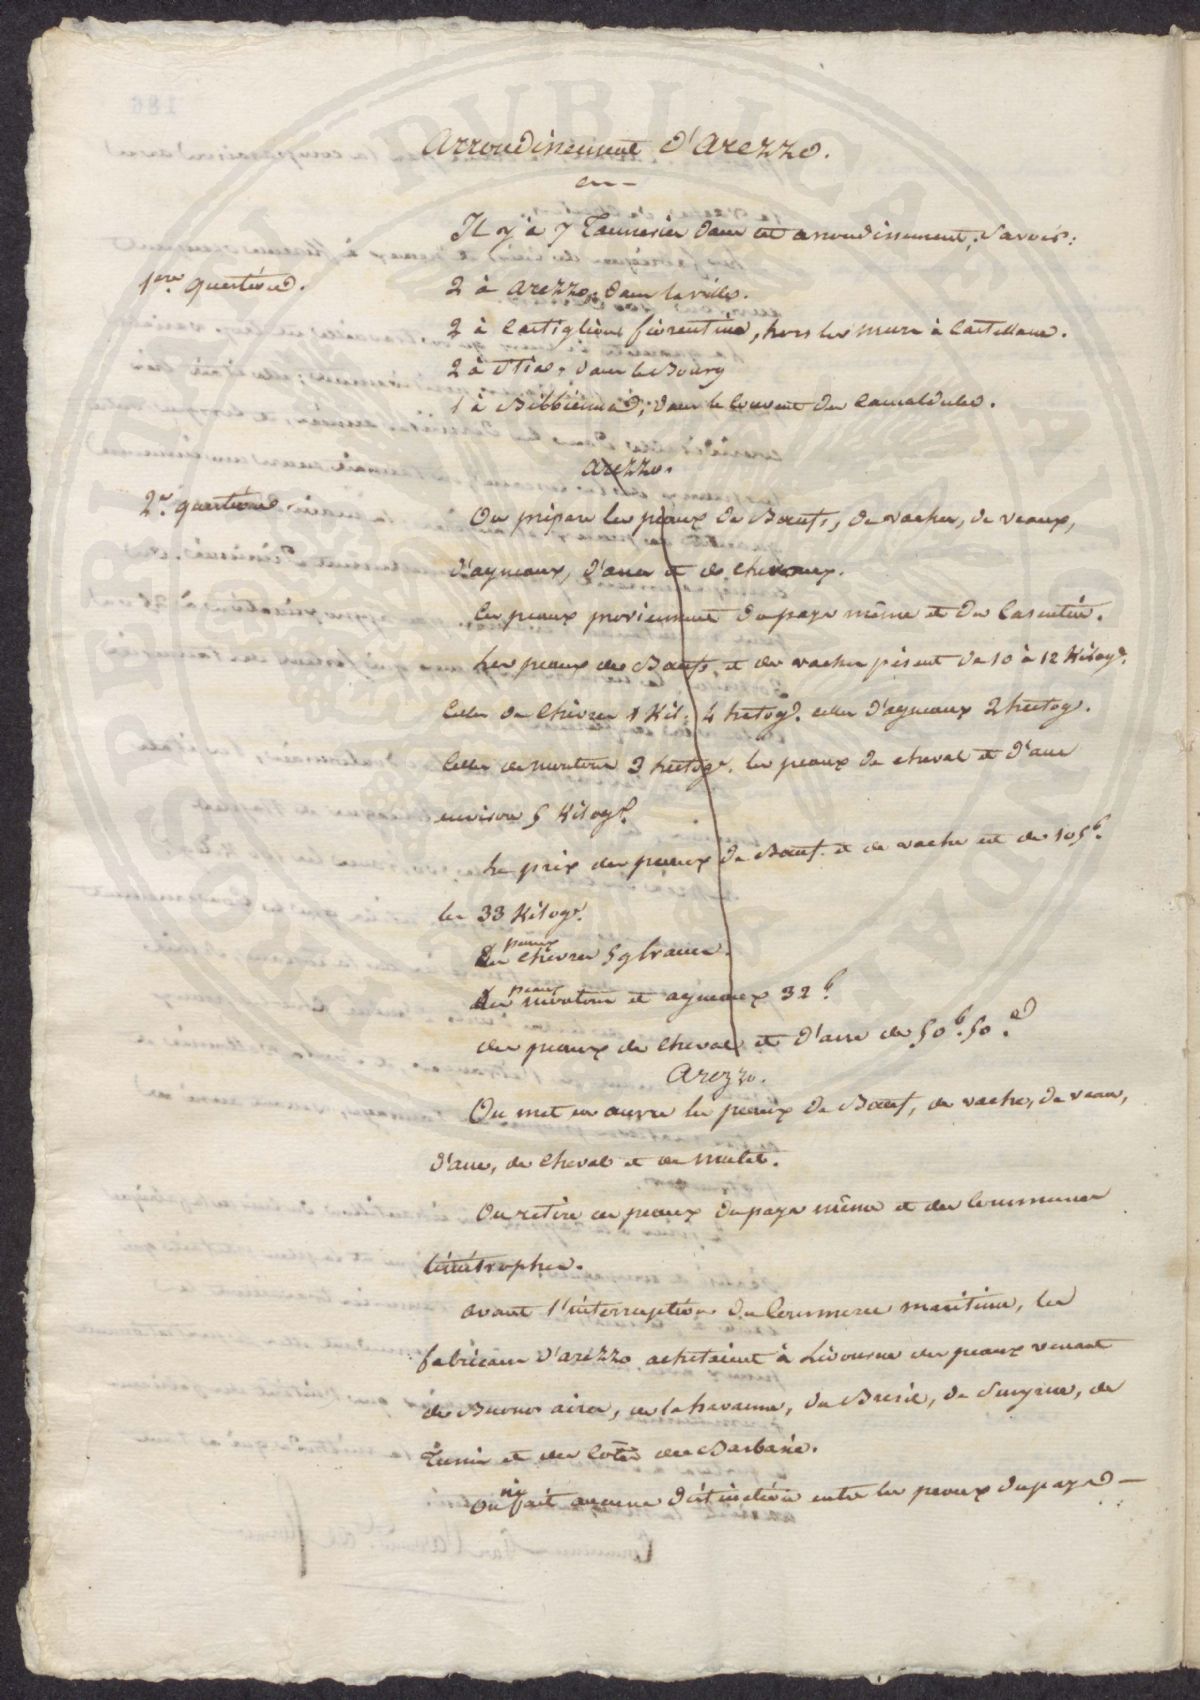 Arrondissement d'Arezzo.
Il y a 7 Tanneries dans cet arrondissement, Savoir:
1ere question.
2 à Arezzo, dans la ville.
2 à Castiglion fiorentino, hors les murs à Castellane.
2 à Stia, dans le Bourg
1 à Bibbiena, dans le Couvent des Camaldules.
Arezzo.
2e question.
On prépare les peaux de Bœufs, de vaches, de veaux,
d'agneaux, d'anes et de chevaux.
Ces peaux proviennent du pays même et du Casentin.
Les peaux de Bœufs, et de vaches pèsent de 10 à 12 Kilogr.
Celles de Chèvres 1 Kil. 4 hectogr. celles d'agneaux 2 hectogr.
Celles de moutons 3 hectogr. les peaux de cheval et d'ane
environ 5 Kilogr.
Le prix des peaux de Bœuf et de vache est de 105 f.
les 33 Kilogr.
Des peaux Chèvres 59 francs.
Des peaux moutons et agneaux 32 f.
des peaux de Cheval et d'ane de 50 f. 50 c.
Arezzo.
On met en œuvre les peaux de Bœuf, de vache, de veau,
d'ane, de Cheval et de Mulet.
On retire ces peaux du pays même et des Communes
limitrophes.
Avant l'interruption du Commerce maritime, les
fabricans d'Arezzo achetaient à Livourne des peaux venant
de Buenos aires, de la havanne, du Bresil, de Smyrne, de
Tunis et des Côtes de Barbarie.
On ny fait aucune distinction entre les peaux du pays